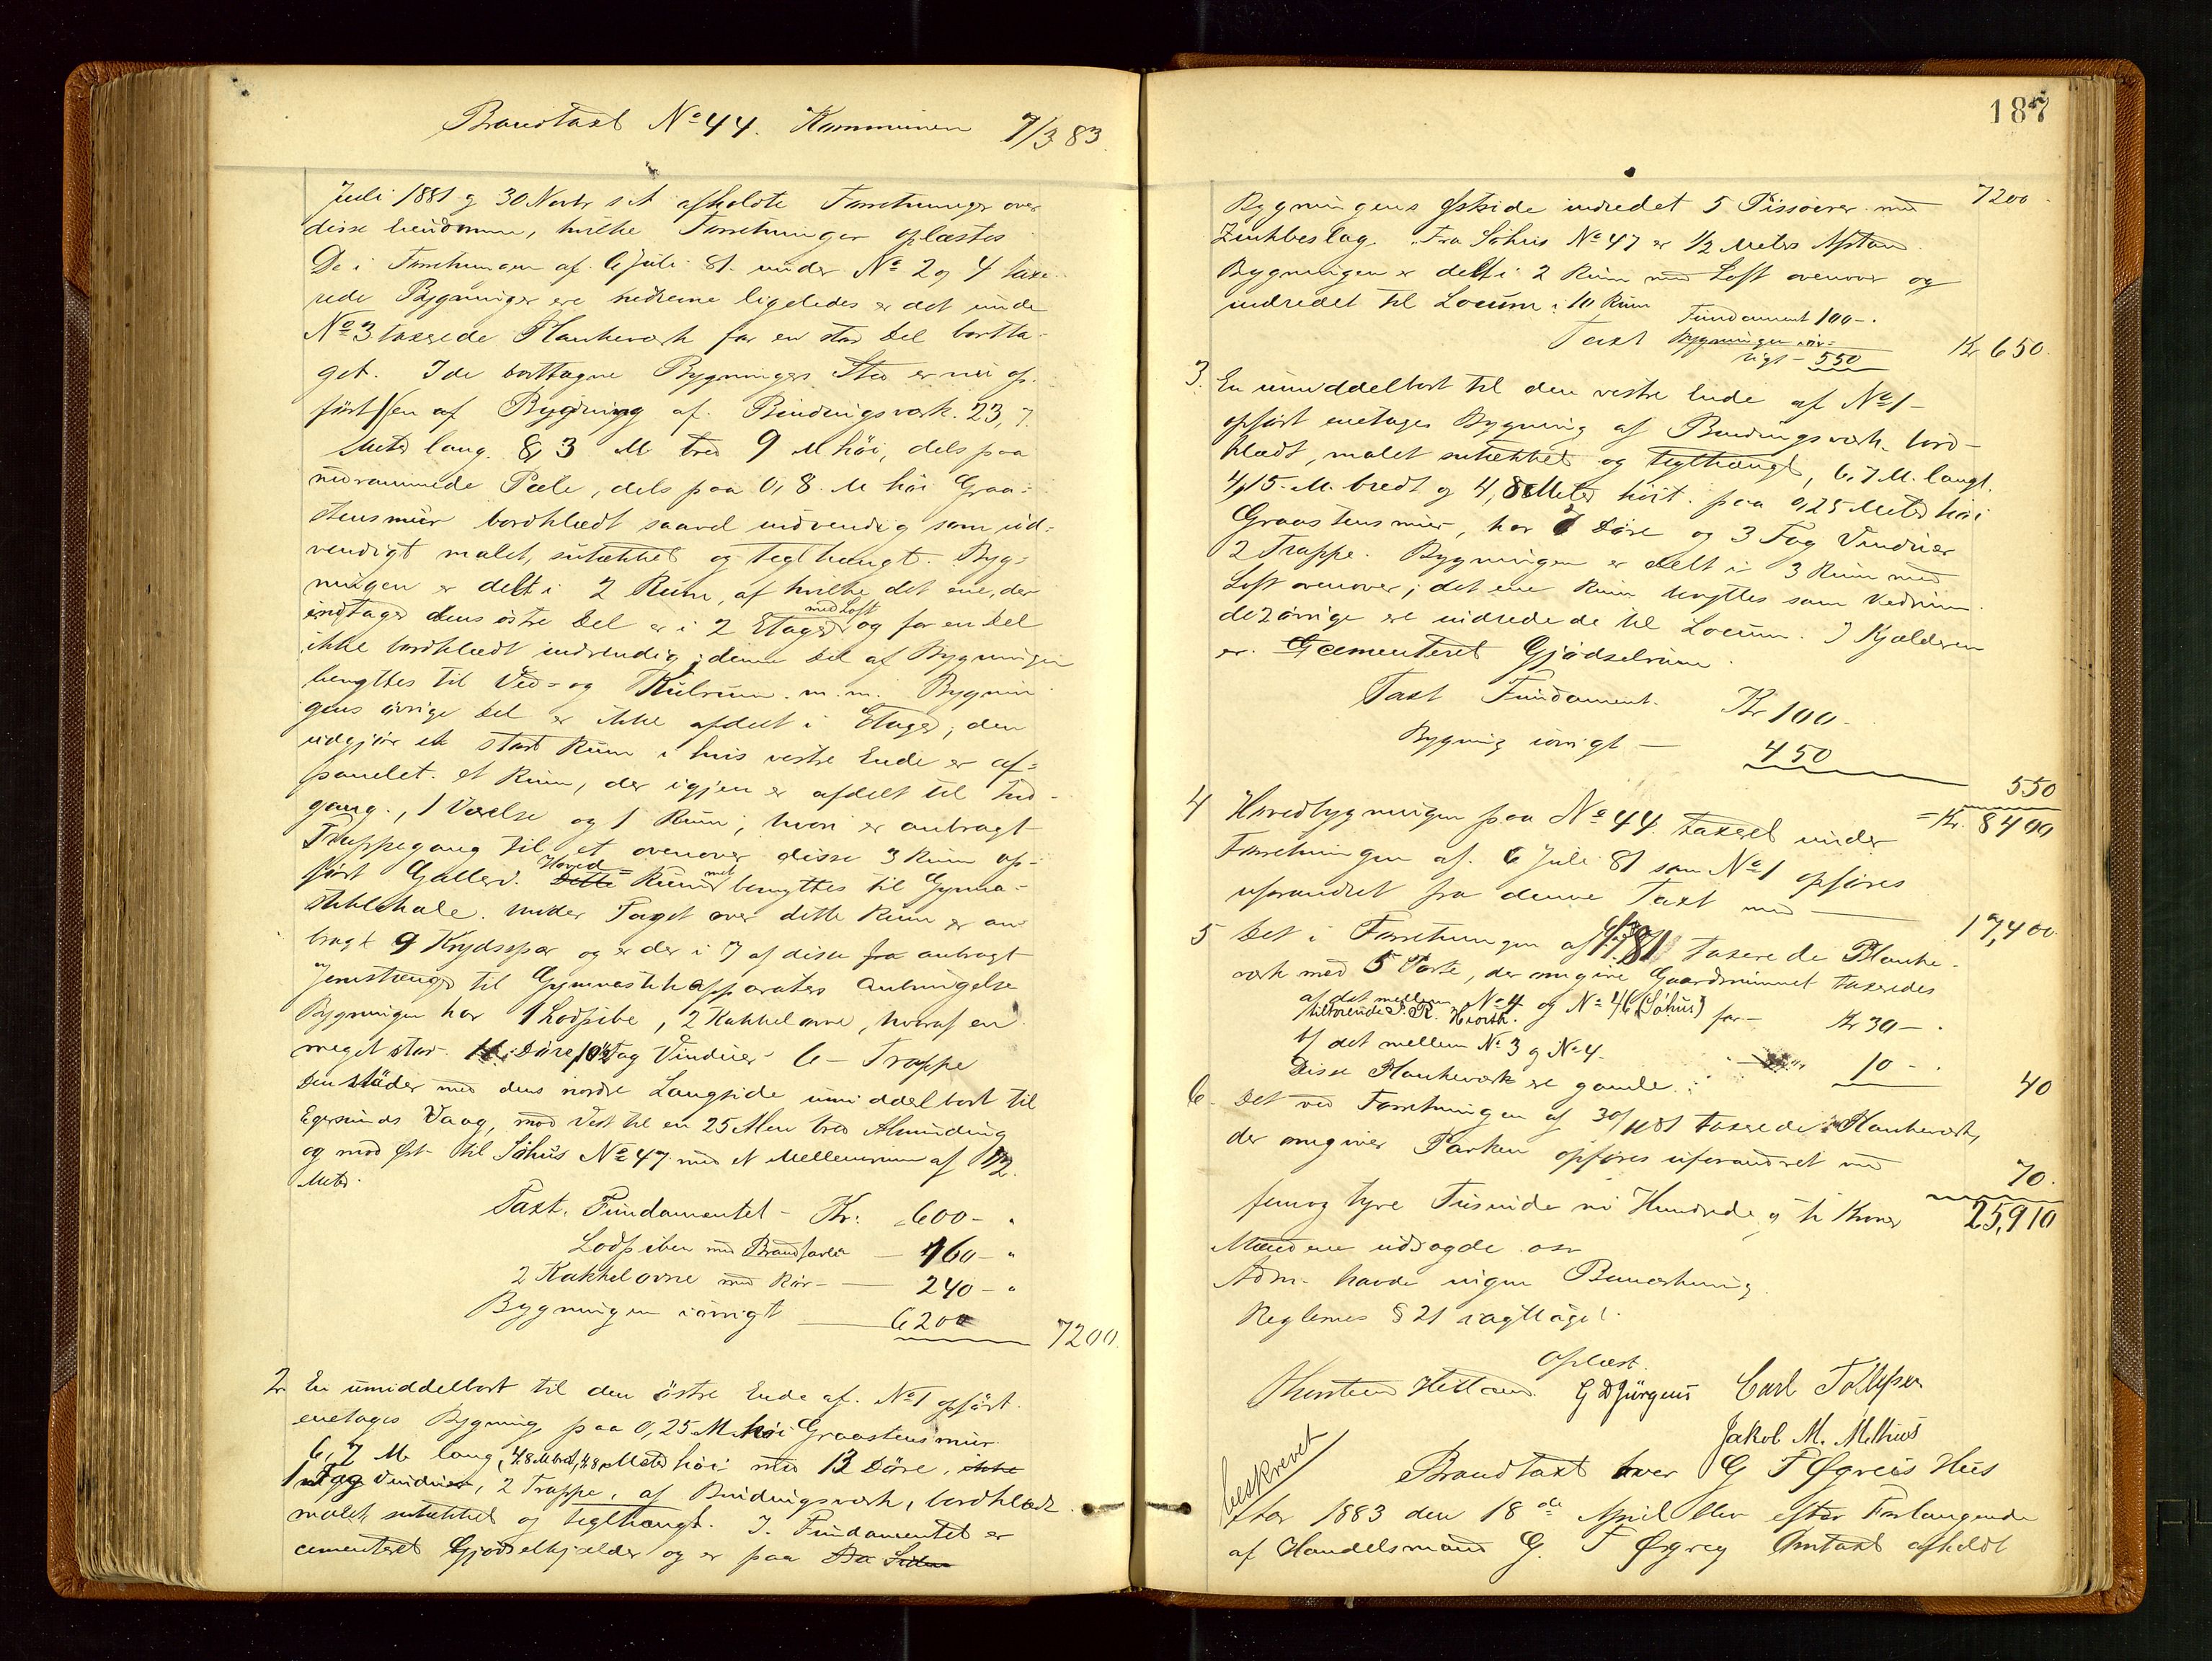 Brandtaxt No 44. Kommunen 7/3 83.
Juli 1881 og 30 Novbr s. A. afholdte Forretninger over
disse Eiendomme, hvilke Forretninger oplæstes
De i Forretningen af 6 Juli 81. under No 2 og 4 taxe-
rede Bygninger ere nedrevne ligeledes er det under
No 3 taxerede Plankeværk for en stor Del bortta-
get. I de borttagne Bygningers Sted er nu op-
ført en Bygning af Bindingsværk. 23,7.
Meter lang. 8,3 M bred 9 M høi, dels paa
nedrammede Pæle, dels paa 0,8 M høi Graa-
stensmur bordklædt saavel indvendig som ud-
vendigt malet, sutækket og teglhængt. Byg-
ningen er delt i 2 Rum, af hvilke det ene, der
indtager dens østre Del er i 2 Etager med Loft og for en Del
ikke bordklædt indvendig; denne Del af Bygningen
benyttes til Ved- og Kulrum. m. m. Bygnin-
gens øvrige Del er ikke afdelt i Etager; den
udgjør et stort Rum i hvis vestre Ende er af-
panelet et Rum, der igjen er afdelt til Ind-
gang, 1 Værelse og 1 Rum, hvori er anbragt
Trappegang til et ovenover disse 3 Rum op-
ført Galleri. Dette Hoved- Rummet benyttes til Gymna-
stiklokale. Under Taget over dette Rum er an-
bragt 9 Krydsspær og er der i 7 af disse anbragt
Jernstænger til Gymnastikapparaters Anbringelse
Bygningen har 1 Lodpibe, 2 Kakkelovne, hvoraf en
meget stor 11 Døre 10½ Fag Vinduer 6 Trappe
Den støder med dens nordre Langside umiddelbart til
Egersunds Vaag, mod Vest til en 25 Alen bred Almending
og mod Øst til Søhus No 47 med et Mellemrum af 1/2
Meter.
Taxt. Fundamentet - Kr. 600 - "
Lodpiben med Brandfarlir - 160 - "
2 Kakkelovne med Rør - 240 - "
Bygningen iøvrigt 6200
7200
2. En umiddelbart til den østre Ende af No 1 opført
enetages Bygning paa 0,25 M høi Graastensmur
6,7 M lang, 4,8 M bred, 4,8 Meter høi med 13 Døre, ikke
1 Fag Vinduer, 2 Trappe, af Bindingsværk, bordklædt
malet, sutækket og teglhængt. I Fundamentet er
cementeret Gjødselkjelder og er paa
187
7200
Bygningens Østside indredet 5 Pissoirer med
Zinkbeslag. Fra Søhus No 47 er 1/2 Meters Afstand
Bygningen er delt i 2 Rum med Loft ovenover og
indredet til Locum i 10 Rum
Fundament 100 - .
Taxt Bygningen iøv-
rigt - 550 Kr 650.
3. En umiddelbart til den vestre Ende af No 1 -
opført enetages Bygning af Bindingsværk. bord-
klædt, malet sutækket og teglhængt, 6,7 M. langt,
4,15 M. bredt og 4,8 Meter høit. paa 0,25 Meter høi
Graastensmur, har 7 Døre og 3 Fag Vinduer
2 Trappe. Bygningen er delt i 3 Rum med
Loft ovenover; det ene Rum benyttes som Vedrum.
de 2 øvrige ere indredede til Locum. I Kjælderen
er cementeret Gjødselrum.
Taxt Fundament. Kr 100 -
Bygning iøvrigt - 450
550
= Kr. 8400
4 Hovedbygningen paa No 44. taxeret under
Forretningen af 6 Juli 81 som No 1 opføres
uforandret fra denne Taxt med 17,400.
5 Det i Forretningen af 6/7 81 taxerede Planke-
værk med 5 Porte, der omgive Gaardsrummet taxeredes
a/ det mellem No 4 og No 46 (Søhus)
tilhørende R. Hiorth. for - Kr 30 - .
b/ det mellem No 3 og No 4. 10 - .
Disse Plankeværk ere gamle. 40
6. Det ved Forretningen af 30/11 81 taxerede Plankeværk,
der omgiver Parken opføres uforandret med
70.
fem og tyve Tusinde ni Hundrede og ti Kroner 25,910
Mændene udsagde osv
Adm. havde ingen Bemærkning.
Reglernes § 21 iagttaget.
Oplæst.
Thorsten Hetland G D Jürgens Carl Tollefsen
Jakob M. Mithus
beskrevet
Brandtaxt over G F Øgreis Hus
Aar 1883 den 18de April blev efter Forlangende
af Handelsmand G. F Øgrey Omtaxt afholdt